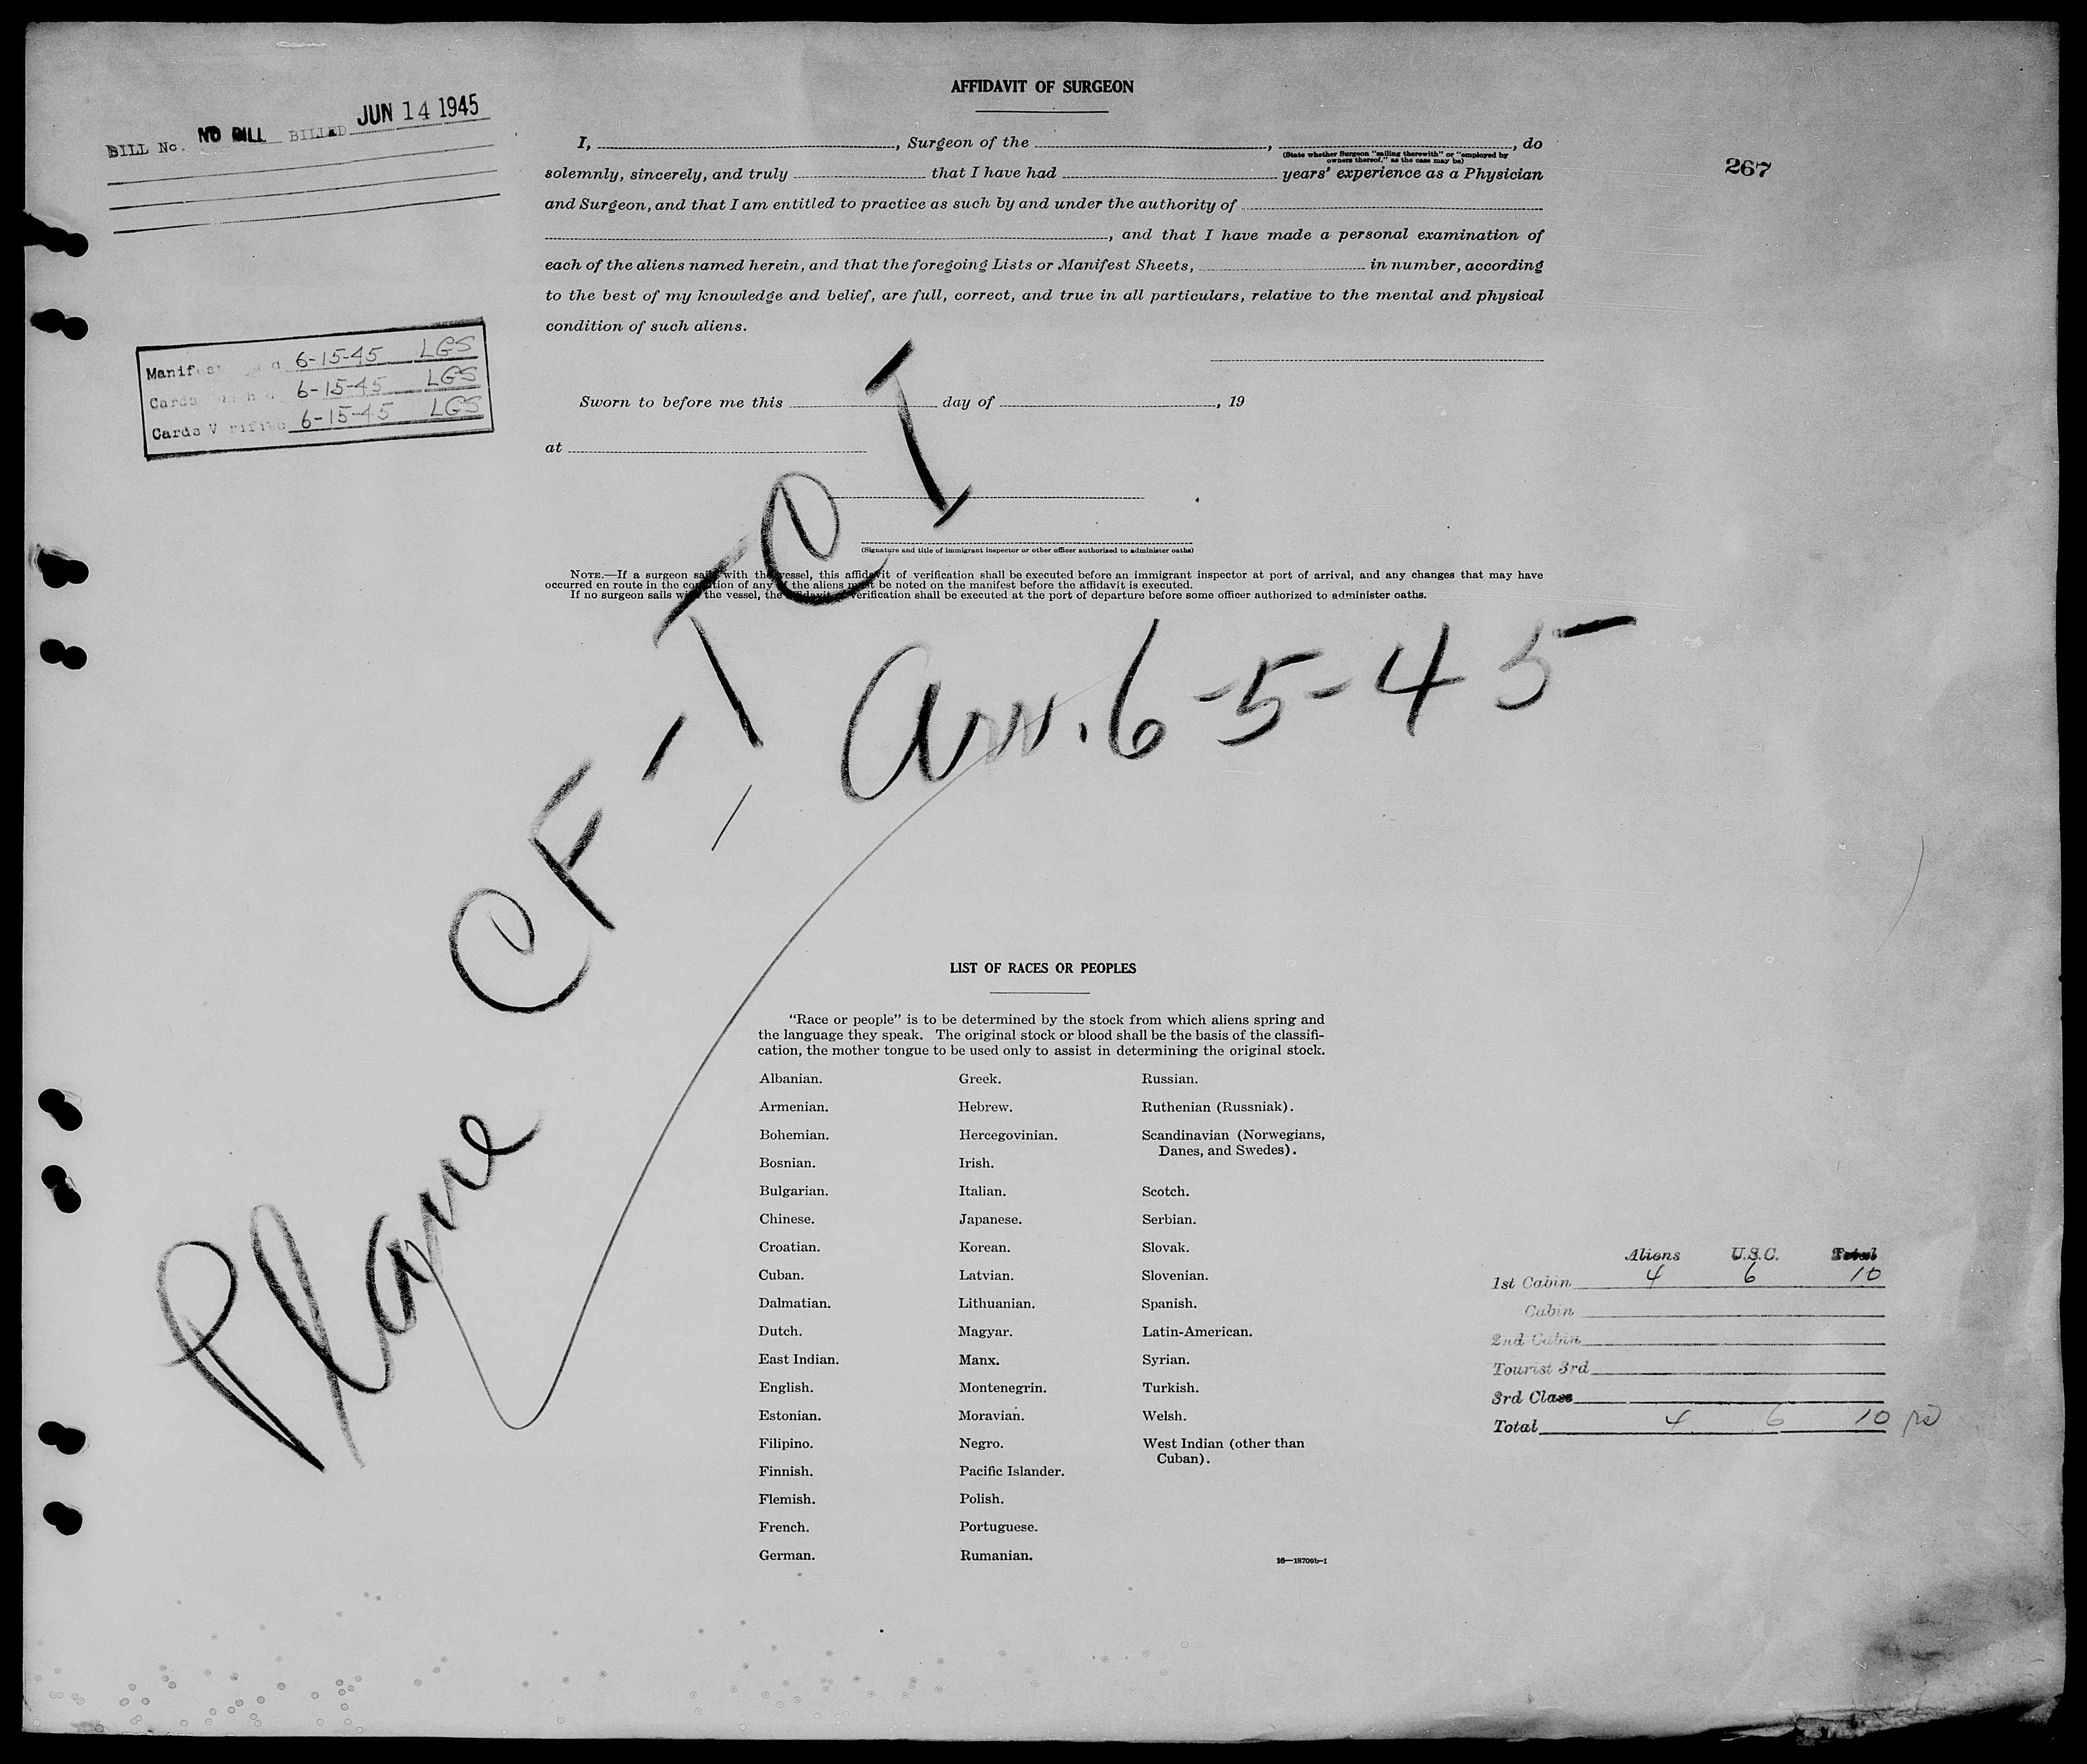 AFFIDAVIT OF SURGEON
BILL No. NO BILL BILLED JUN 14 1945
267
I, , Surgeon of the , , do
(State whether Surgeon "sailing therewith" or "employed by
owners thereof," as the case may be)
solemnly, sincerely, and truly that I have had years' experience as a Physician
and Surgeon, and that I am entitled to practice as such by and under the authority of
, and that I have made a personal examination of
each of the aliens named herein, and that the foregoing Lists or Manifest Sheets, in number, according
to the best of my knowledge and belief, are full, correct, and true in all particulars, relative to the mental and physical
condition of such aliens.
Manifest 6-15-45 LGS
Cards 6-15-45 LGS
Cards Verified 6-15-45 LGS
Sworn to before me this day of , 19
at
(Signature and title of immigrant inspector or other officer authorized to administer oaths)
NOTE.—If a surgeon sails with the vessel, this affidavit of verification shall be executed before an immigrant inspector at port of arrival, and any changes that may have
occurred en route in the condition of any of the aliens must be noted on the manifest before the affidavit is executed.
If no surgeon sails with the vessel, the affidavit of verification shall be executed at the port of departure before some officer authorized to administer oaths.
Plane CF-TCI
Arr. 6-5-45
LIST OF RACES OR PEOPLES
"Race or people" is to be determined by the stock from which aliens spring and
the language they speak. The original stock or blood shall be the basis of the classifi-
cation, the mother tongue to be used only to assist in determining the original stock.
Albanian.
Armenian.
Bohemian.
Bosnian.
Bulgarian.
Chinese.
Croatian.
Cuban.
Dalmatian.
Dutch.
East Indian.
English.
Estonian.
Filipino.
Finnish.
Flemish.
French.
German.
Greek.
Hebrew.
Hercegovinian.
Irish.
Italian.
Japanese.
Korean.
Latvian.
Lithuanian.
Magyar.
Manx.
Montenegrin.
Moravian.
Negro.
Pacific Islander.
Polish.
Portuguese.
Rumanian.
Russian.
Ruthenian (Russniak).
Scandinavian (Norwegians,
Danes, and Swedes).
Scotch.
Serbian.
Slovak.
Slovenian.
Spanish.
Latin-American.
Syrian.
Turkish.
Welsh.
West Indian (other than
Cuban).
16—18709b-1
Aliens U.S.C. Total
1st Cabin 4 6 10
Cabin
2nd Cabin
Tourist 3rd
3rd Class
Total 4 6 10